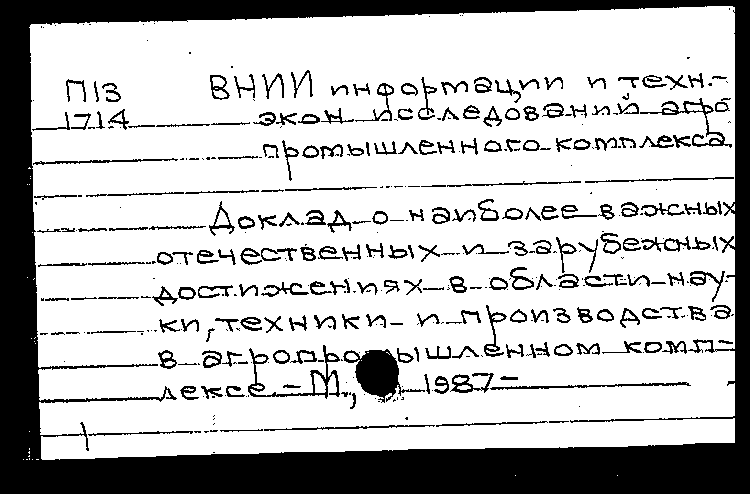 П13 ВНИИ информации и техн.-
1714 экон. исследований агро
промышленного комплекса.
Доклад о наиболее важных
отечественных и зарубежных
достижениях в области нау-
ки, техники и производства
в агропромышленном комп-
лексе. – М., 1987 –